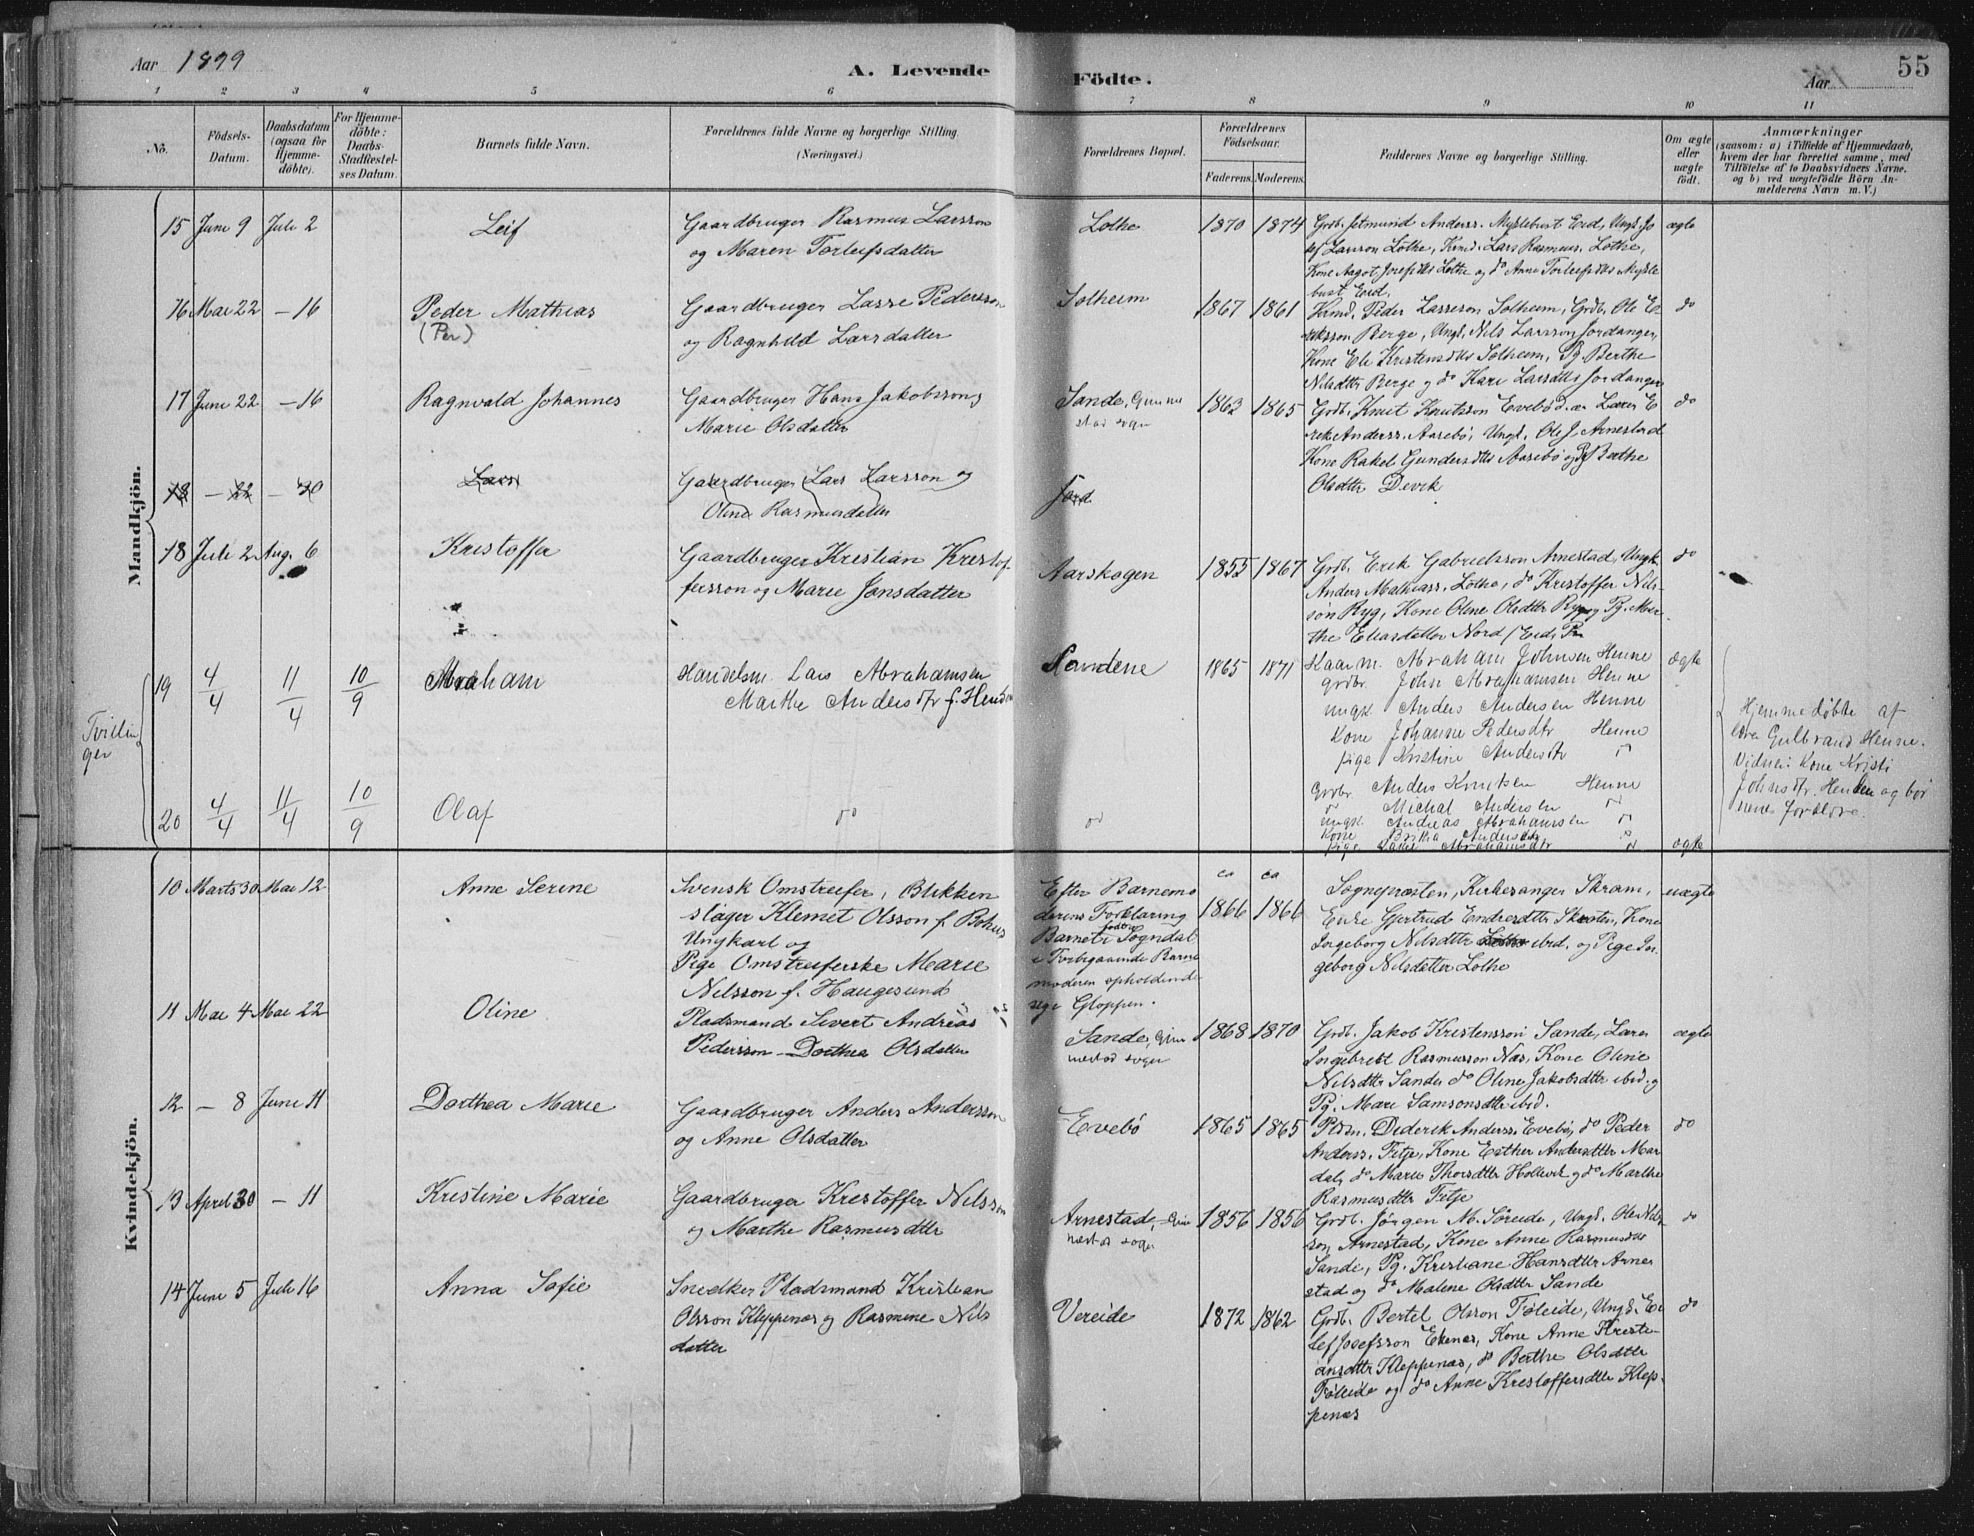 Aar 1899
A. Levende
Födte.
Aar
55
1 2 3 4 5 6 7 8 9 10 11
No.
Födsels-
Datum.
Daabsdatum
(ogsaa för
Hjemme-
döbte).
For Hjemme-
döbte:
Daabs-
Stadfæstel-
ses Datum.
Barnets fulde Navn.
Forældrenes fulde Navne og borgerlige Stilling.
(Næringsvei.)
Forældrenes Bopæl.
Forældrenes
Födselsaar.
Faderens. Moderens.
Faddernes Navne og borgerlige Stilling.
Om ægte
eller
uægte
födt.
Anmærkninger
(saasom: a) i Tilfælde af Hjemmedaab,
hvem der har forrettet samme, med
Tilföielse af to Daabsvidners Navne,
og b) ved uægtefödte Börn An-
melderens Navn m. V.)
Mandkjön.
15 Juni 9 Juli 2
Leif
Gaardbruger Rasmus Larsson
og Maren Torleifsdatter
Lothe
1870 1874
Grdb. Jetmund Anderss. Myklebust Eid, Ungk. Jo
sef Larsson Lothe, Kmd. Lars Rasmuss. Lothe,
Kone Aagot Josefsdtr Lothe og do Anne Torleifsdtr Mykle
bust Eid.
ægte
16 Mai 22 - 16
Peder Mathias
(Per)
Gaardbruger Lasse Pedersson
og Ragnhild Larsdatter
Solheim
1867 1861
Kmd. Peder Lasseson Solheim, Grdb. Ole E
riksson Berge, Ungk. Nils Larsson Jordanger,
Kone Eli Kristensdtr Solheim, Pg. Berthe
Nilsdttr Berge og do Kari Larsdtr Jordanger
do
17 Juni 22 - 16
Ragnvald Johannes
Gaardbruger Hans Jakobsson og
Marie Olsdatter
Sande, Gimme
stad sogn
1863 1865
Grdb. Knut Knutsson Evebö, Lærer E
rik Anderss. Aasebö, Ungk. Ole J. Arnestad
Kone Rakel Gundersdtr Aasebö og Pg. Berthe
Olsdttr Devik
do
18 - 22 - 30
Lars
Gaardbruger Lars Larsson og
Oline Rasmusdatter
18 Juli 2 Aug. 6
Kristoffer
Gaardbruger Kristian Kristof
fersson og Marie Jonsdatter
Aarskogen
1855 1867
Grdb. Erik Gabrielsson Arnestad, Ungk.
Anders Mathiass. Lothe, do Kristoffer Nils-
son Ryg, Kone Oline Olsdttr Ryg og Pg. Mar-
the Eliasdatter Nord / Eid
do
Tvillin
ger
19 4/4 11/4 10/9
Abraham
Handelsm. Lars Abrahamsen
Marthe Andersdtr f. Henden
Sandene
1865 1871
Kaarm. Abraham Johnsen Henne
grdbr. John Abrahamsen Henne
ungk. Anders Andersen Henne
Kone Johanne Pedersdtr Henne
pige Kristine Andersdtr do
ægte
Hjemmedöbte af
lærer Gulbrand Henne.
Vidner: Kone Kristi
Johnsdtr. Henden og bör
nenes forældre.
20 4/4 11/4 10/9
Olaf
do
do
Grdbr. Anders Knutsen Henne
do Michal Andersen do
ungk. Andreas Abrahamsen do
Kone Britha Andersdtr do
Pige Abrahamsdtr do
ægte
Kvindekjön.
10 Marts 30 Mai 12
Anne Serine
Svensk Omstreifer, Blikken
slager Klemet Olsson f. Bohus
Ungkarl og
Pige Omstreiferske Marie
Nilsson f. Haugesund
Efter Barnemo
derens Forklaring
Barnet födt i Sogndal
i Forbigaaende Barne
moderen opholdende
sig i Gloppen.
ca ca
1866 1866
Sognepræsten, Kirkesanger Skram,
Enke Gjertrud Endresdttr Skisten, Kone
Ingeborg Nilsdttr ibid. og Pige In-
geborg Nilsdatter Lothe
uægte
11 Mai 4 Mai 22
Oline
Pladsmand Sivert Andreas
Pedersson - Dorthea Olsdatter
Sande, Gim
mestad sogn
1868 1870
Grdb. Jakob Kristensson Sande, Lærer
Ingebrikt Rasmusson Næs, Kone Oline
Nilsdttr Sande, do Oline Jakobsdttr ibid. og
Pg. Mari Samsonsdttr ibid.
ægte
12 - 8 Juni 11
Dorthea Marie
Gaardbruger Anders Andersson
og Anne Olsdatter
Evebö
1865 1865
Pldm. Diderik Anderss. Evebö, do Peder
Anderss. Fitje, Kone Esther Andersdttr Mar
dal, do Marie Thorsdttr Hollevik og do Marthe
Rasmusdttr Fitje
do
13 April 30 - 11
Kristine Marie
Gaardbruger Kristoffer Nilsson
og Marthe Rasmusdttr
Arnestad, Gim
mestad sogn
1856 1856
Grdb. Jørgen M. Söreide, Ungk. Ole Nils-
son Arnestad, Kone Anne Rasmusdtr
Sande, Pg. Kristiane Hansdttr Arne
stad og do Malene Olsdttr Sande
do
14 Juni 5 Juli 16
Anna Sofie
Snedker Pladsmand Kristian
Olsson Kleppenæs og Rasmine Nils
datter
Vereide
1872 1862
Grdb. Bertel Olsson Föleide, Ungk. E
lef Josefsson Ekenæs, Kone Anne Kristi-
ansdttr Kleppenæs, do Berthe Olsdttr
Föleide og do Anne Kristoffersdttr Klep-
penæs
do